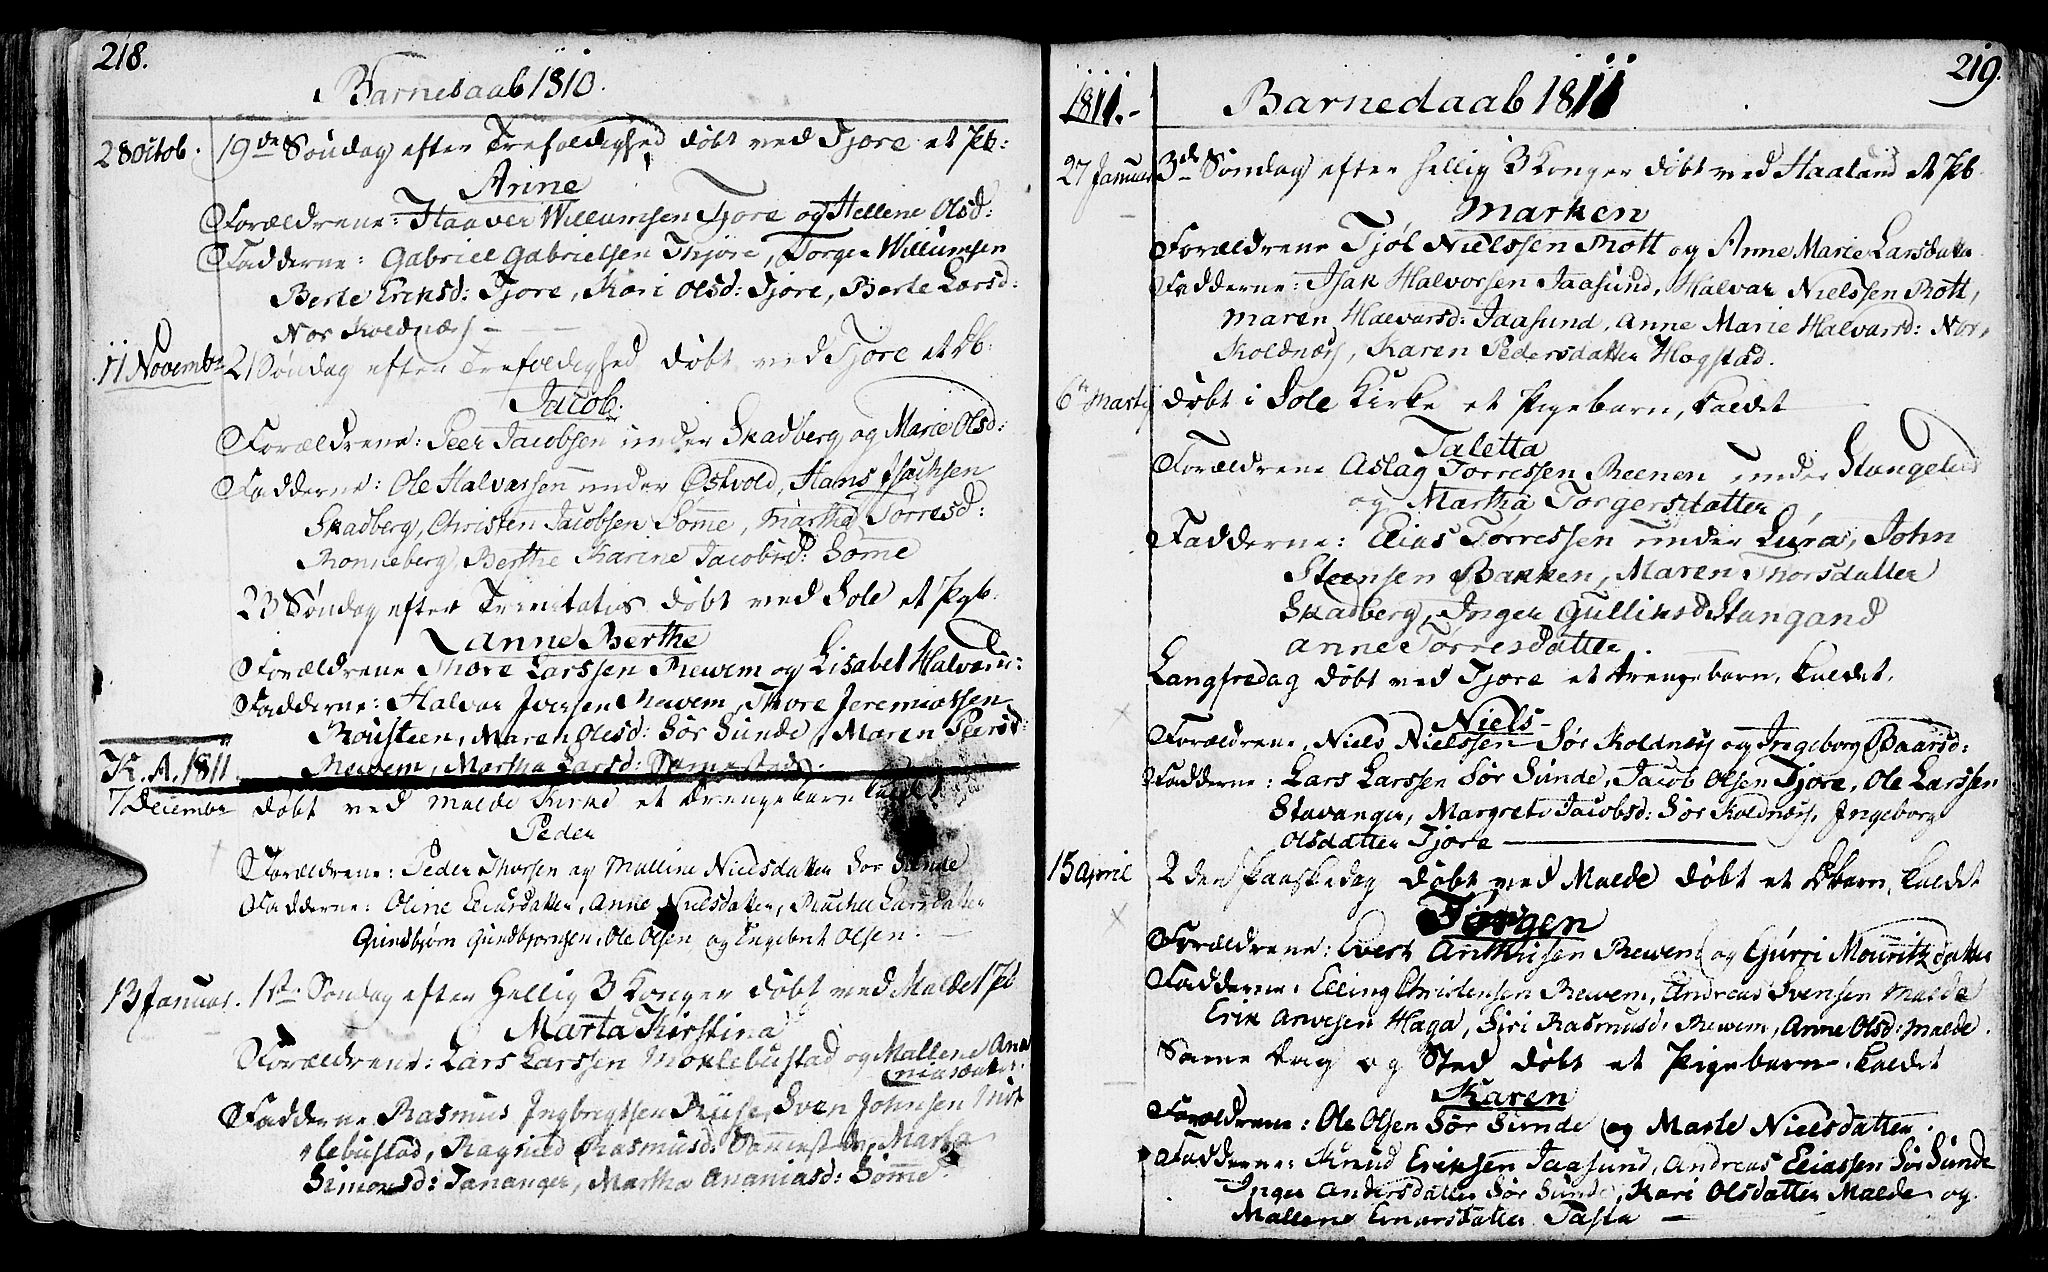 218.
Barnedaab 1810.
28 octob. 19de Søndag efter Trefoldighed døbt ved Tjore et Pb:
Anne
Forældrene: Haaver Willumsen Tjore og Hellene Olsd:
Fadderne: Gabriel Gabrielsen Thjore, Torger Willumsen
Berte Eriksd: Tjore, Kari Olsd: Tjore, Berte Larsd:
Nor Kolnæs
11 Novembr 21 Søndag efter Trefoldighed døbt ved Tjore et Db:
Jacob.
Forældrene: Peer Jacobsen under Skadberg og Marie Olsd:
Fadderne: Ole Halvarsen under Østvold, Hans Isachsen
Skadberg, Christen Jacobsen Somme, Martha Torresd:
Ronneberg, Berthe Karine Jacobsd: Somme
23 Søndag efter Trinitatis døbt ved Sole et Pgb.
Anne Berthe
Forældrene Thore Larssen Rewem og Lisabet Halvarsd:
Fadderne: Halvar Iversen Rewem, Thore Jeremiassen
Rousteen, Maren Olesd: Sør Sunde, Maren Peersd:
Rewem, Martha Larsd:
K. A. 1811.
7 Decembr døbt ved Malde Kirke et Drengebarn kaldet
Peder
Forældrene: Peder Thorsen og Mallene Nielsdatter Sør Sunde
Fadderne: Oline Eliasdatter, Anne Nielsdatter, Rachel Larsdatter
Gundbjørn Gundbjørnsen, Ole Olsen og Engebret Olsen.
13 Januar. 1ste Søndag efter Hellig 3 Konger døbt ved Malde 1 Pb
Marta Kirstina
Forældrene: Lars Larssen Moklebustad og Mallene Ana
niasdatter
Fadderne Rasmus Ingbregtsen Riise, Sven Johnsen Mok
lebustad, Ragnild Rasmusd: Marta
Simonsd: Tananger, Martha Ananiasd: Somme
219.
1811.-
Barnedaab 1811
27 Januar 3de Søndag efter Hellig 3 Konger døbt ved Haaland et Pb.
Marken
Forældrene Tjøl Nielssen Rott og Anne Marie Larsdatter
Fadderne: Isak Halvorsen Jaasund, Halvar Nielssen Rott,
Maren Halvarsd: Jaasund, Anne Marie Halvarsd: Nor,
Kolnæs, Karen Pedersdatter Hogstad.
6te Martij døbt i Sole Kirke et Pigebarn, kaldet
Taletta
Forældrene Aslag Torressen Reenen under Stangeland
og Martha Torgersdatter
Fadderne: Elias Torressen under Lura, John
Steensen Bakken, Maren Thorsdatter
Skadberg, Inger Gulliksd Stangand
Anne Torresdatter.
Langfredag døbt ved Tjore et Drengebarn, kaldet.
Niels
Forældrene, Niels Nielssen Sør Kolnæs og Ingeborg Baarsd:
Fadderne: Lars Larssen Sør Sunde, Jacob Olsen Tjore, Ole Larssen
Stavanger, Margrete Jacobsd: Sør Kolnæs, Ingeborg
Olsdatter Tjore
15 April 2den Paaskedag døbt ved Malde døbt et Dbarn, kaldet
Torgen
Forældrene: Evert Rewem og Gurri Mouritzdatter
Fadderne: Elling Christensen Rewem, Andreas Svensen Malde
Erik Arnesen Haga, Siri Rasmusd: Rewem, Anne Olsd: Malde.
Same Dag og Sted døbt et Pigebarn, kaldet
Karen
Forældrene: Ole Olsen Sør Sunde og Marte Nielsdatter.
Fadderne: Knud Eriksen Jaasund, Andreas Eliassen Sør Sunde
Inger Andersdatter Sør Sunde, Kari Olsdatter Malde og
Mallene Einarsdatter Tasta